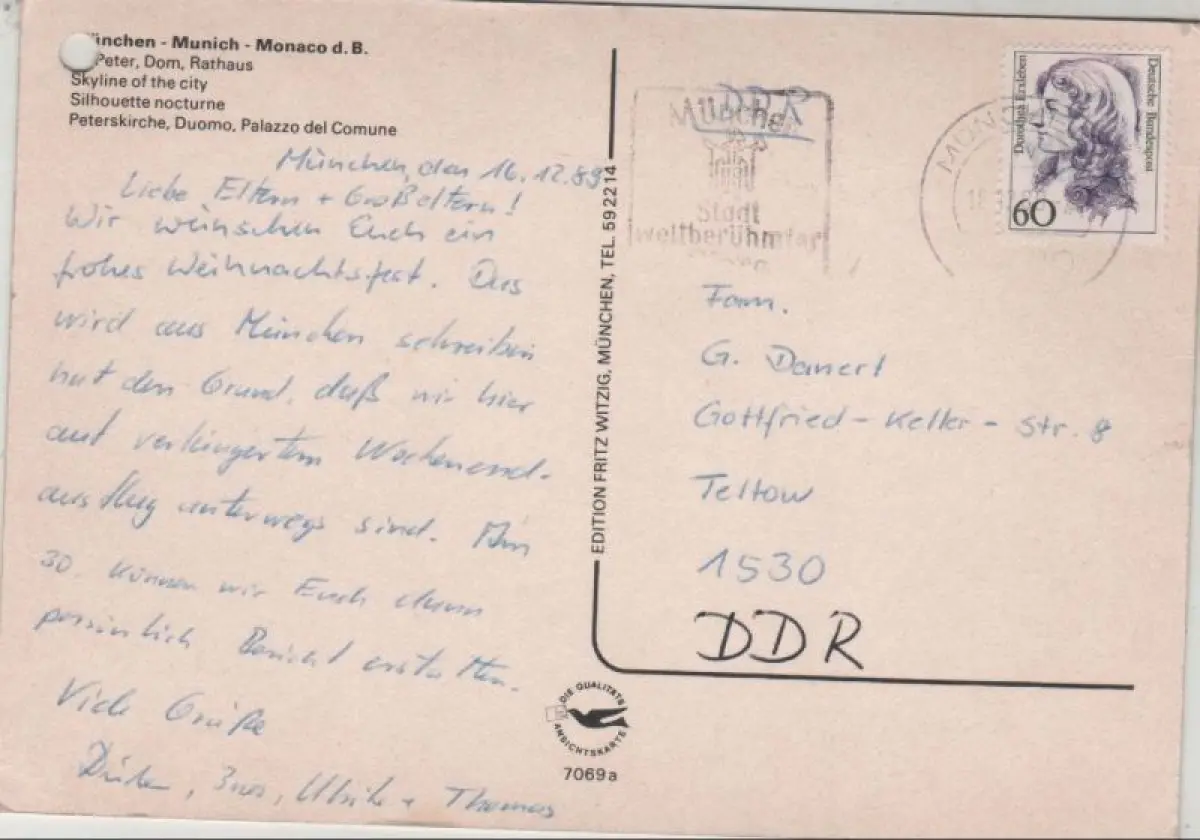 ünchen - Munich - Monaco d. B.
Peter, Dom, Rathaus
Skyline of the city
Silhouette nocturne
Peterskirche, Duomo, Palazzo del Comune
München, den 16.12.89
Liebe Eltern + Großeltern!
Wir wünschen Euch ein
frohes Weihnachtsfest. Das
wird aus München schreiben
hat den Grund, daß wir hier
auf verlängertem Wochenend-
ausflug unterwegs sind. Am
30. können wir Euch dann
persönlich Bericht erstatten.
Viele Grüße
Ulrike + Thomas
EDITION FRITZ WITZIG, MÜNCHEN, TEL. 59 22 14
DIE QUALITÄTS
ANSICHTSKARTE
7069a
DDR
München
Stadt
weltberühmter
MÜNCH
Dorothea Erxleben
Deutsche Bundespost
60
Fam.
G. Danert
Gottfried-Keller-Str. 8
Teltow
1530
DDR